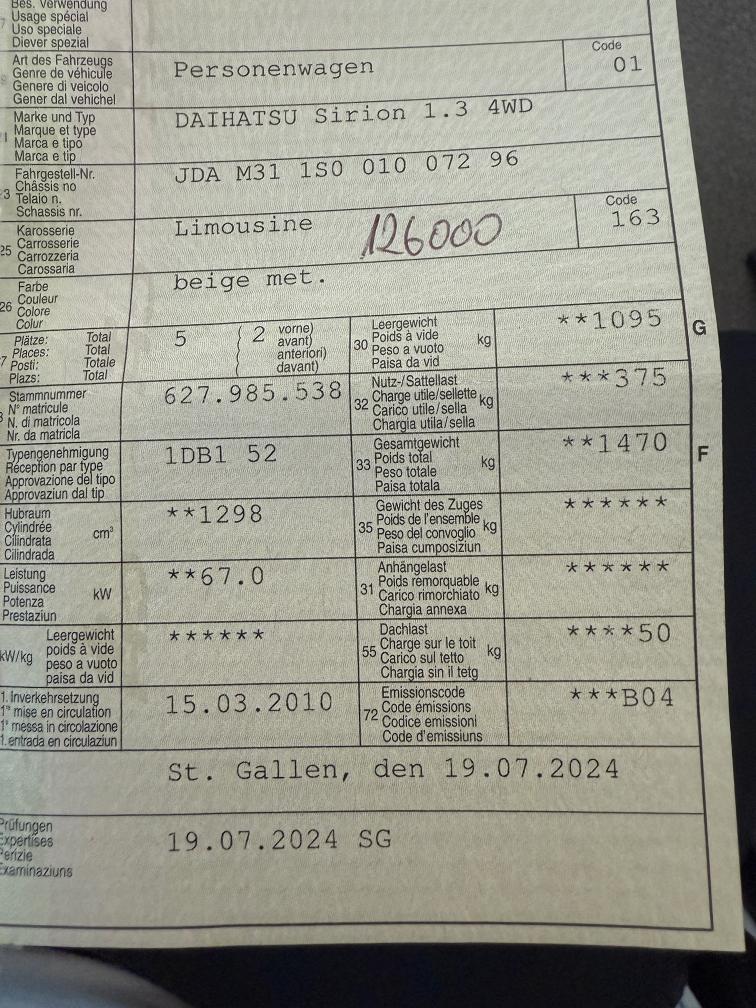 Bes. Verwendung
Usage spécial
Uso speciale
Diever spezial
Art des Fahrzeugs
Genre de véhicule
Genere di veicolo
Gener dal vehichel
Personenwagen
Code
01
Marke und Typ
Marque et type
Marca e tipo
Marca e tip
DAIHATSU Sirion 1.3 4WD
Fahrgestell-Nr.
Châssis no
3 Telaio n.
Schassis nr.
JDA M31 1S0 010 072 96
25
Karosserie
Carrosserie
Carrozzeria
Carossaria
Limousine
126000
Code
163
26
Farbe
Couleur
Colore
Colur
beige met.
7
Plätze: Total
Places: Total
Posti: Totale
Plazs: Total
5
( 2 vorne)
avant)
anteriori)
davant)
30
Leergewicht
Poids à vide
Peso a vuoto
Paisa da vid
kg
**1095
G
Stammnummer
N° matricule
N. di matricola
Nr. da matricla
627.985.538
32
Nutz-/Sattellast
Charge utile/sellette
Carico utile/sella
Chargia utila/sella
kg
***375
Typengenehmigung
Réception par type
Approvazione del tipo
Approvaziun dal tip
1DB1 52
33
Gesamtgewicht
Poids total
Peso totale
Paisa totala
kg
**1470
F
Hubraum
Cylindrée
Cilindrata
Cilindrada
cm³
**1298
35
Gewicht des Zuges
Poids de l'ensemble
Peso del convoglio
Paisa cumposiziun
kg
******
Leistung
Puissance
Potenza
Prestaziun
kW
**67.0
31
Anhängelast
Poids remorquable
Carico rimorchiato
Chargia annexa
kg
******
kW/kg
Leergewicht
poids à vide
peso a vuoto
paisa da vid
******
55
Dachlast
Charge sur le toit
Carico sul tetto
Chargia sin il tetg
kg
****50
1. Inverkehrsetzung
1° mise en circulation
1° messa in circolazione
1. entrada en circulaziun
15.03.2010
72
Emissionscode
Code émissions
Codice emissioni
Code d'emissiuns
***B04
St. Gallen, den 19.07.2024
Prüfungen
Expertises
Perizie
Examinaziuns
19.07.2024 SG